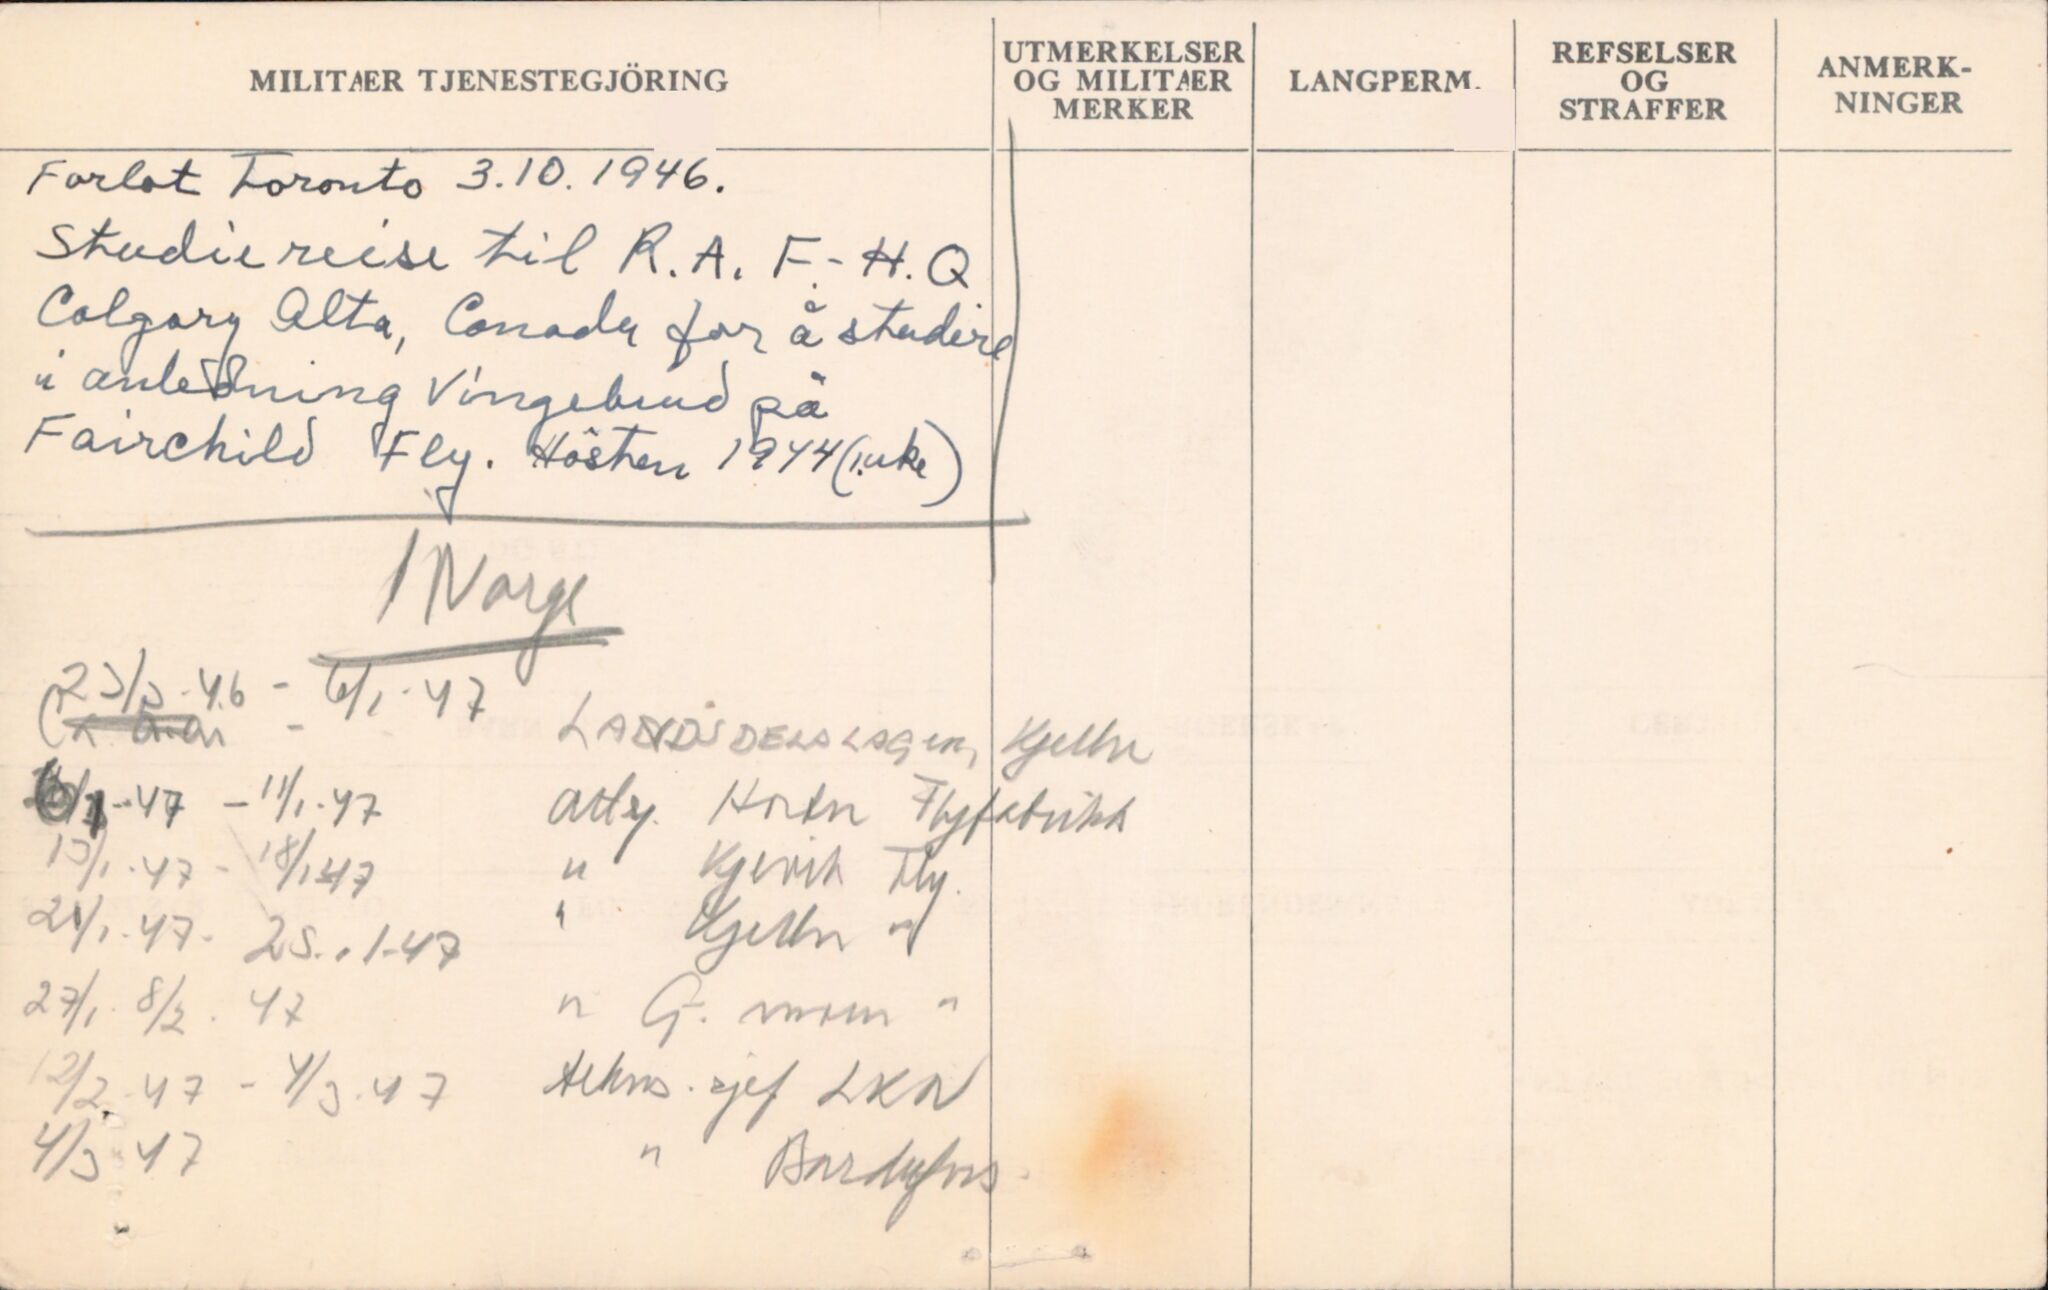 MILITÆR TJENESTEGJÖRING
UTMERKELSER OG MILITÆR MERKER
LANGPERM.
REFSELSER OG STRAFFER
ANMERK-NINGER
Forlot Toronto 3.10.1946.
Studiereise til R.A.F.-H.Q
Calgary Alta, Canada for å studere
i anledning Vingebrud på
Fairchild Fly. Hösten 1944 (1.uke)
I Norge
23/3.46 - 6/1.47
LANDSDELSLAGER, Kjeller
/1.47 - 11/1.47 Horten Flyfabrikk
13/1.47 - 18/1.47 " Kjevik Fly.
21/1.47 - 25.1-47 " Kjeller "
27/1. 8/2. 47 " G. moen "
12/2.47 - 4/3.47 Tekns. sjef LKN
4/3 47 " Bardufoss